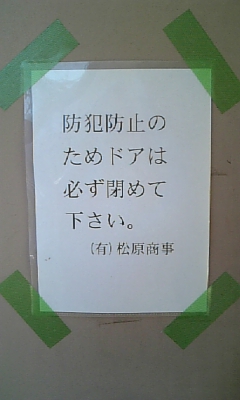 防犯防止の
ためドアは
必ず閉めて
下さい。
(有) 松原商事